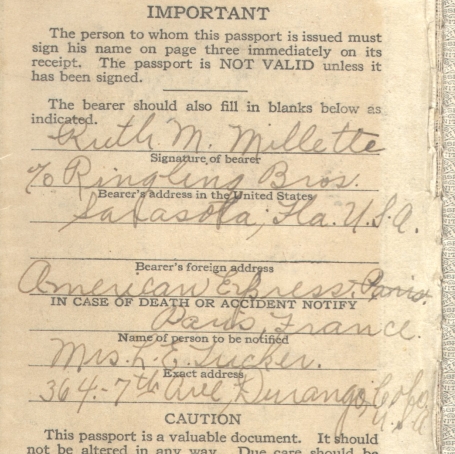 IMPORTANT
The person to whom this passport is issued must
sign his name on page three immediately on its
receipt. The passport is NOT VALID unless it
has been signed.
The bearer should also fill in blanks below as
indicated.
Ruth M. Millette
Signature of bearer
c/o Ringling Bros.
Bearer's address in the United States
Sarasota, Fla. U.S.A.
Bearer's foreign address
American Express, Paris
IN CASE OF DEATH OR ACCIDENT NOTIFY
Paris, France.
Name of person to be notified
Mrs. L. E. Tucker.
Exact address
364-7th Ave, Durango, Colo
U.S.A
CAUTION
This passport is a valuable document. It should
not be altered in any way. Due care should be